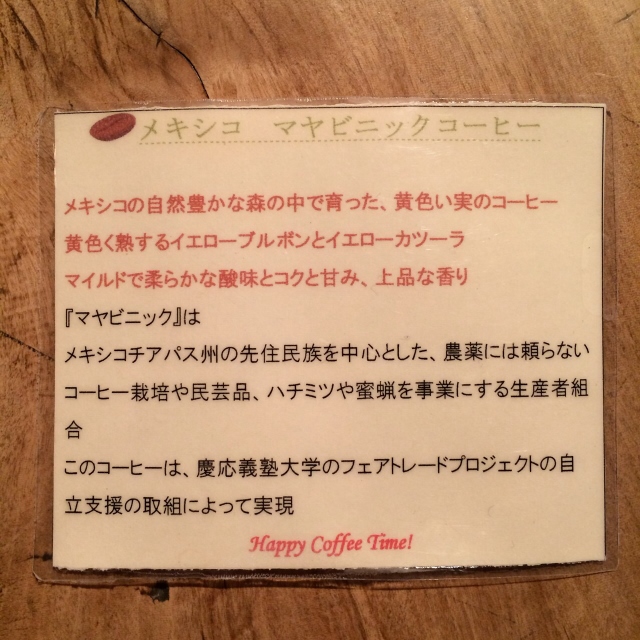 メキシコ　マヤビニックコーヒー
メキシコの自然豊かな森の中で育った、黄色い実のコーヒー
黄色く熟するイエローブルボンとイエローカツーラ
マイルドで柔らかな酸味とコクと甘み、上品な香り
『マヤビニック』は
メキシコチアパス州の先住民族を中心とした、農薬には頼らない
コーヒー栽培や民芸品、ハチミツや蜜蝋を事業にする生産者組
合
このコーヒーは、慶応義塾大学のフェアトレードプロジェクトの自
立支援の取組によって実現
Happy Coffee Time!